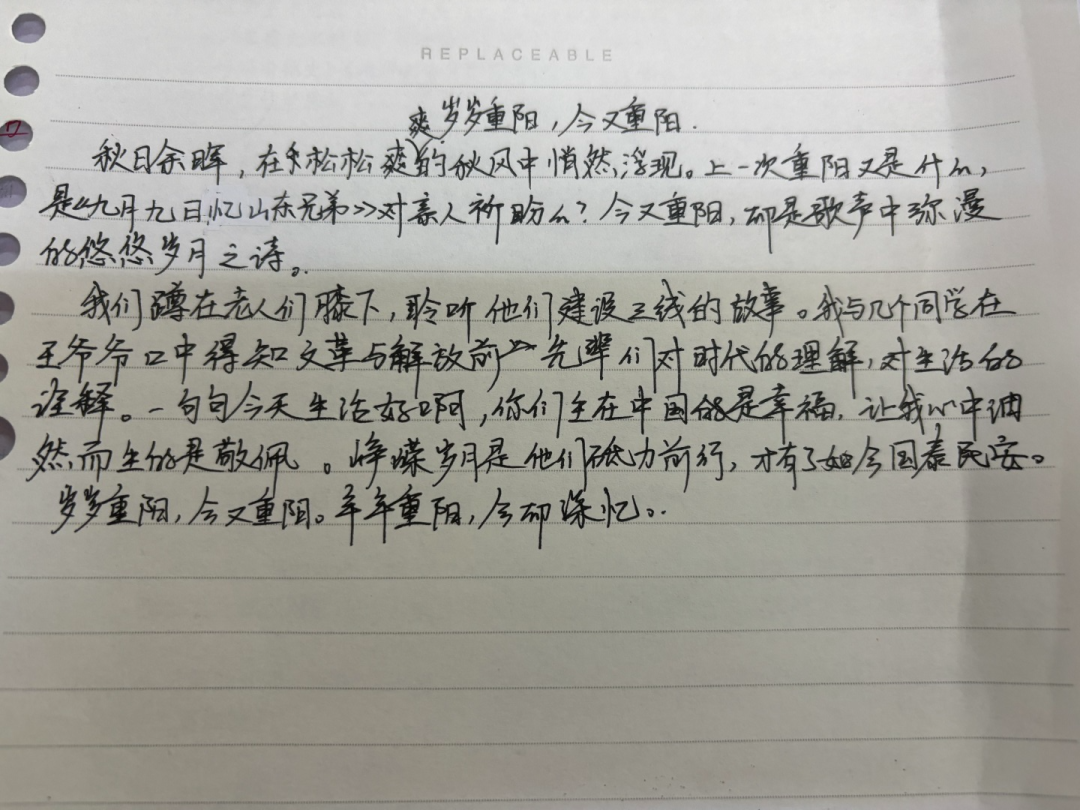 REPLACEABLE
岁岁重阳，今又重阳.
爽
秋日余晖，在松松爽的秋风中悄然浮现。上一次重阳又是什么，
是《九月九日忆山东兄弟》对亲人祈盼么？今又重阳，却是歌声中弥漫
的悠悠岁月之诗。
我们蹲在老人们膝下，聆听他们建设三线的故事。我与几个同学在
王爷爷口中得知文革与解放前 先辈们对时代的理解，对生活的
诠释。一句句今天生活好啊，你们生在中国的是幸福，让我心中油
然而生的是敬佩。峥嵘岁月是他们砥力前行，才有了如今国泰民安。
岁岁重阳，今又重阳。年年重阳，今却深忆。